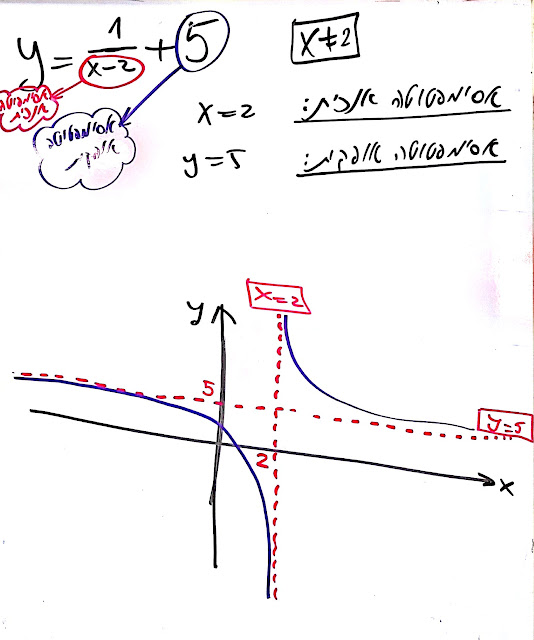 y = 1/(x-2) + 5
x ≠ 2
אסימפטוטה אנכית
אסימפטוטה אופקית
אסימפטוטה אנכית: x = 2
אסימפטוטה אופקית: y = 5
x = 2
y
5
y = 5
2
x